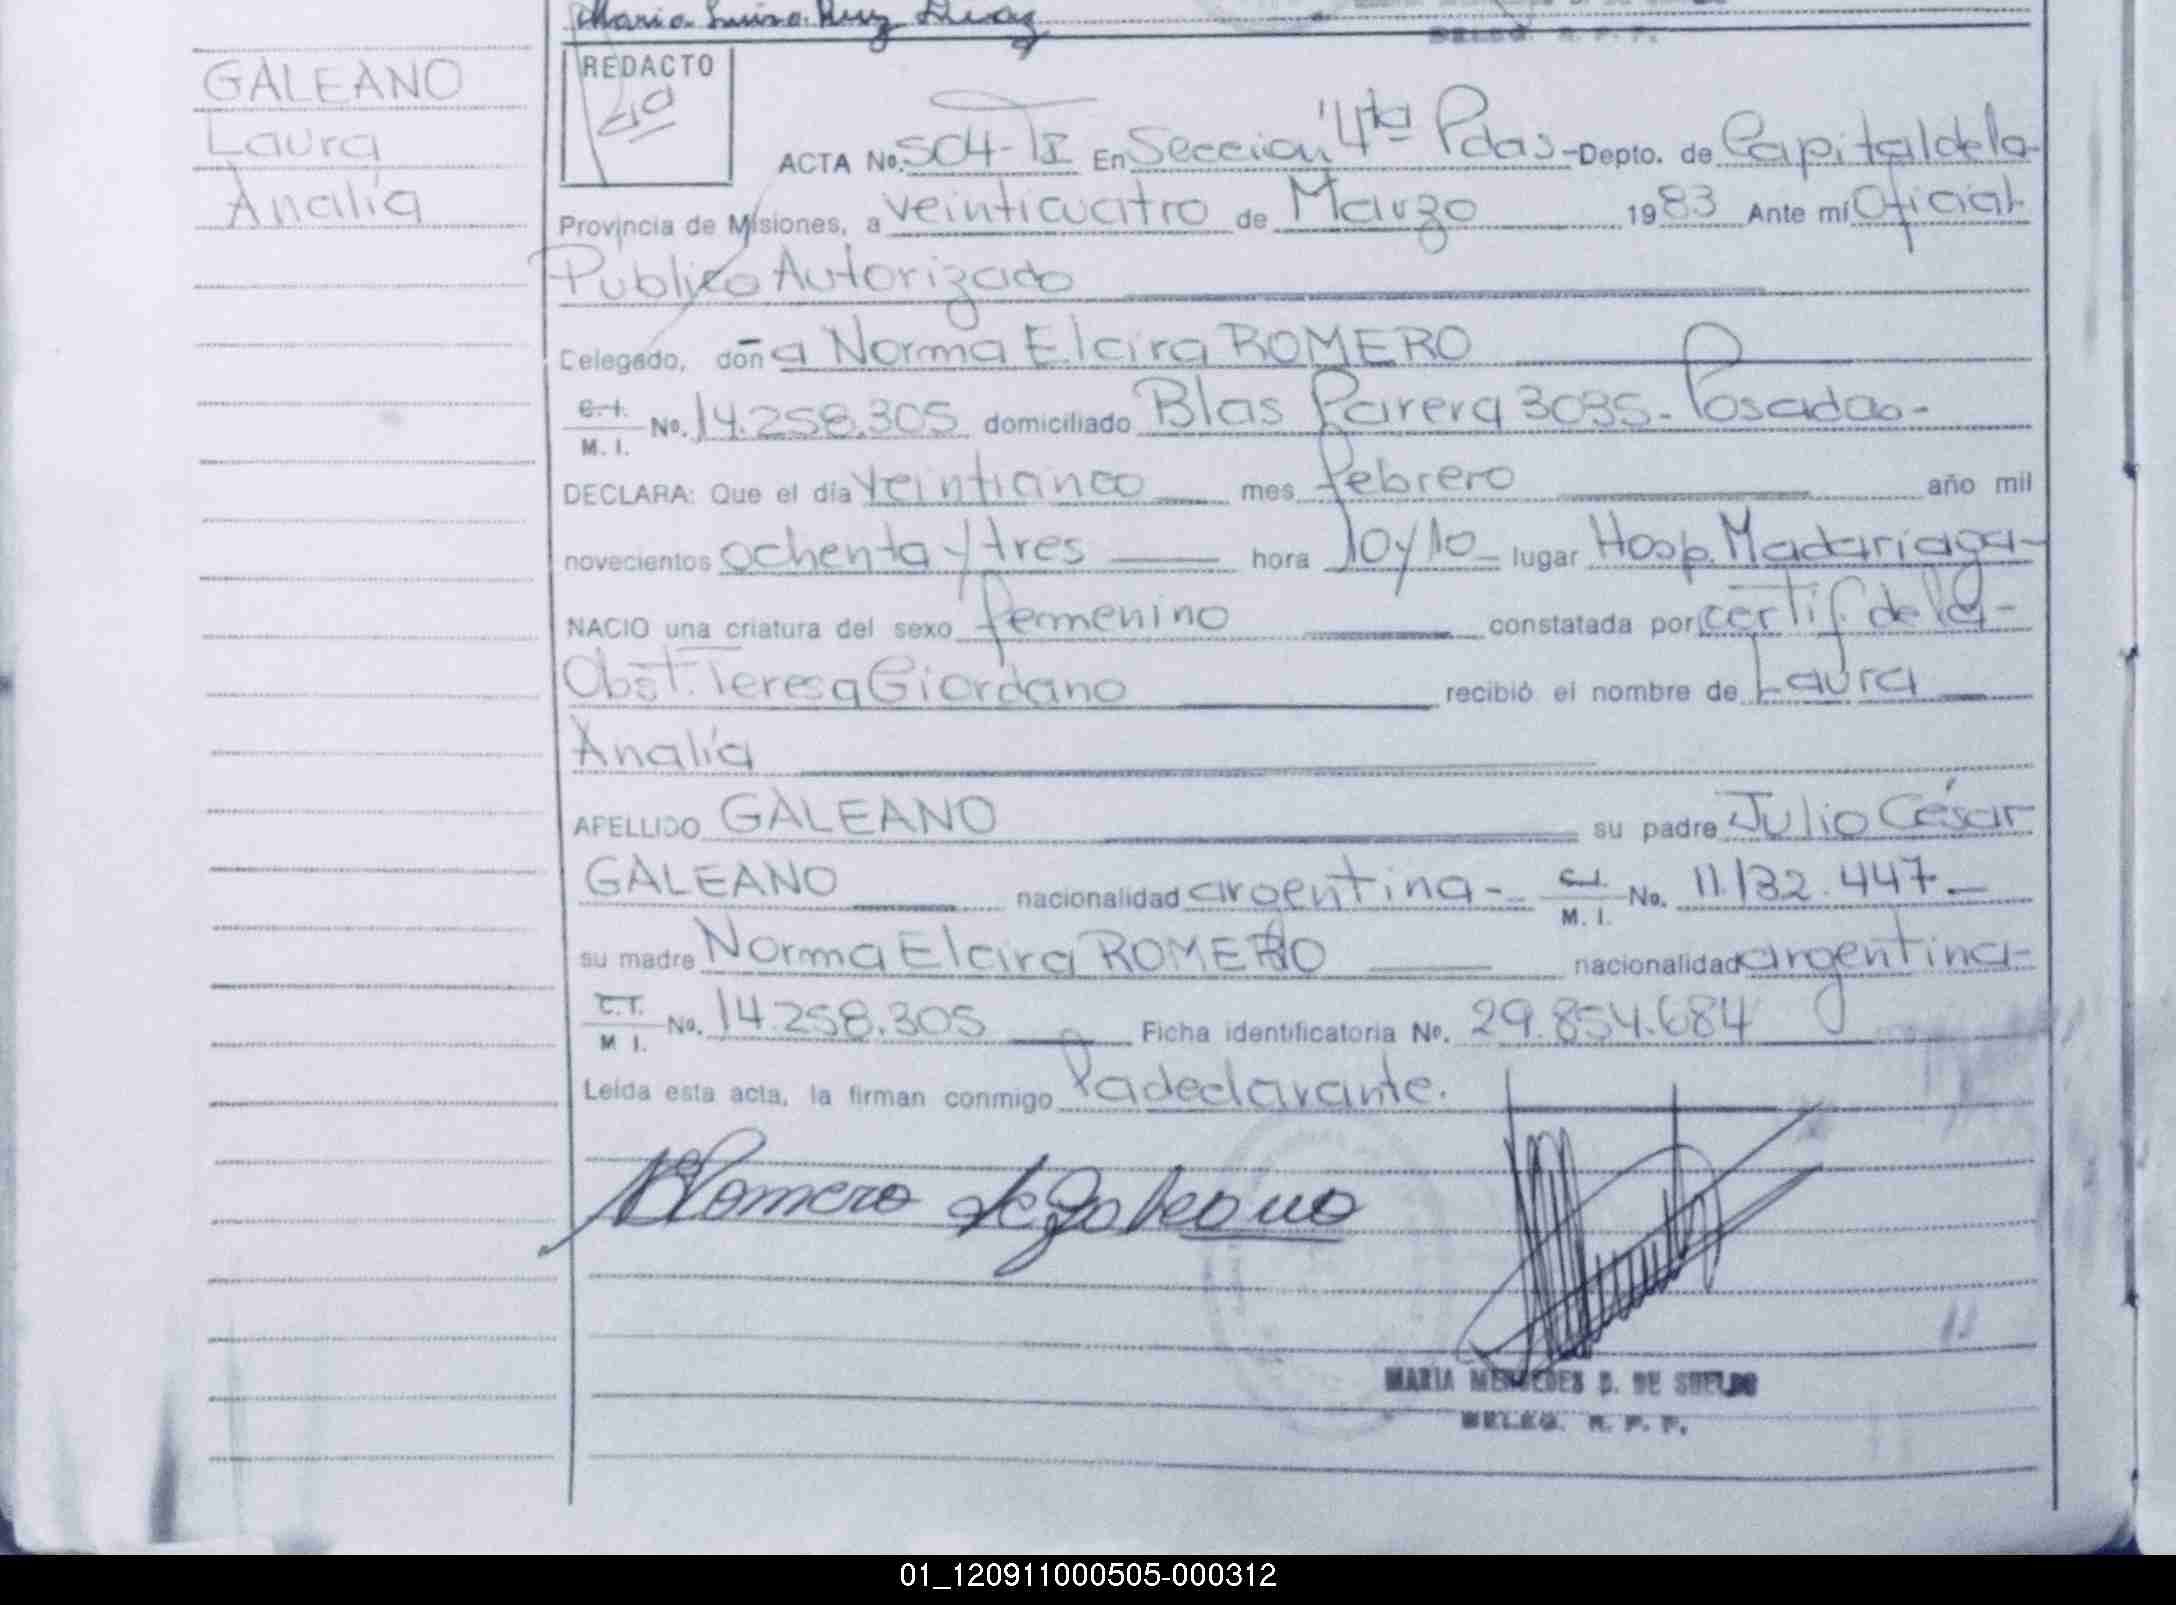 Maria Luisa Ruiz Diaz
DELEG. R. P. P.
GALEANO
Laura
Analía
REDACTO
ACTA No. 504-TI En Seccion 4ta Pdas-Depto. de Capital de la
Provincia de Misiones, a veinticuatro de Marzo 1983 Ante mí Oficial
Público Autorizado
Celegado, doña Norma Elcira ROMERO
C.I.
M. I. No. 14.258.305 domiciliado Blas Parera 3035- Posadas-
DECLARA: Que el día veinticinco mes febrero año mil
novecientos ochenta y tres hora 10 y 10 lugar Hosp. Madariaga-
NACIO una criatura del sexo femenino constatada por certif. de la-
Obst. Teresa Giordano recibió el nombre de Laura
Analía
APELLIDO GALEANO su padre Julio César
GALEANO nacionalidad argentina- C.I.
M. I. No. 11.132.447-
su madre Norma Elcira ROMERO nacionalidad argentina-
C.I.
M I. No. 14.258.305 Ficha identificatoria No. 29.854.684
Leída esta acta, la firman conmigo la declarante.
NRomero de Galeano
MARIA MERCEDES D. DE SUELDO
DELEG. R. P. P.
01_120911000505-000312